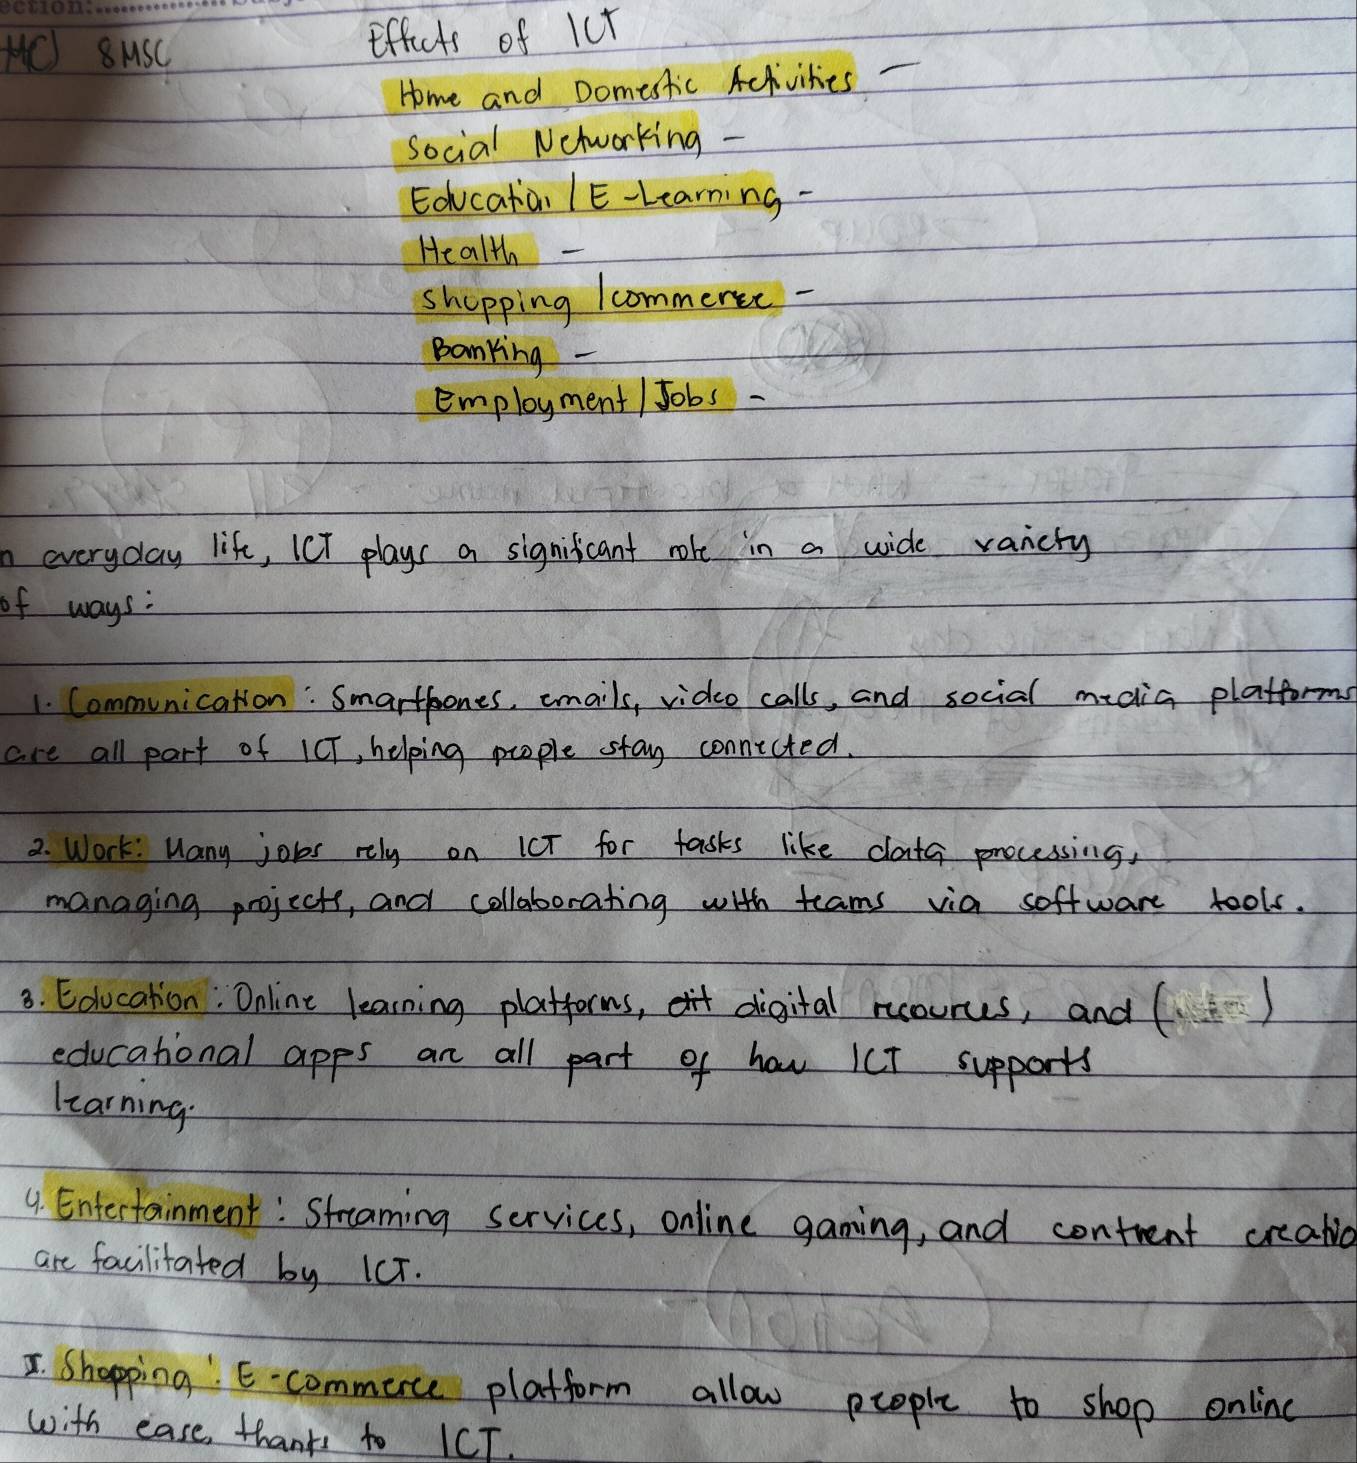 ection:
8MSC
Effects of ICT
Home and Domestic Activities -
Social Networking -
Education / E-Learning -
Health -
Shopping / commerce -
Banking -
Employment / Jobs -
n everyday life, ICT plays a significant role in a wide variety
of ways:
1. Communication: Smartphones, emails, video calls, and social media platforms
are all part of ICT, helping people stay connected.
2. Work: Many jobs rely on ICT for tasks like data processing,
managing projects, and collaborating with teams via software tools.
3. Education: Online learning platforms, digital resources, and ( )
educational apps are all part of how ICT supports
learning.
4. Entertainment: Streaming services, online gaming, and content creatio
are facilitated by ICT.
5. Shopping: E-commerce platform allow people to shop online
with ease, thanks to ICT.